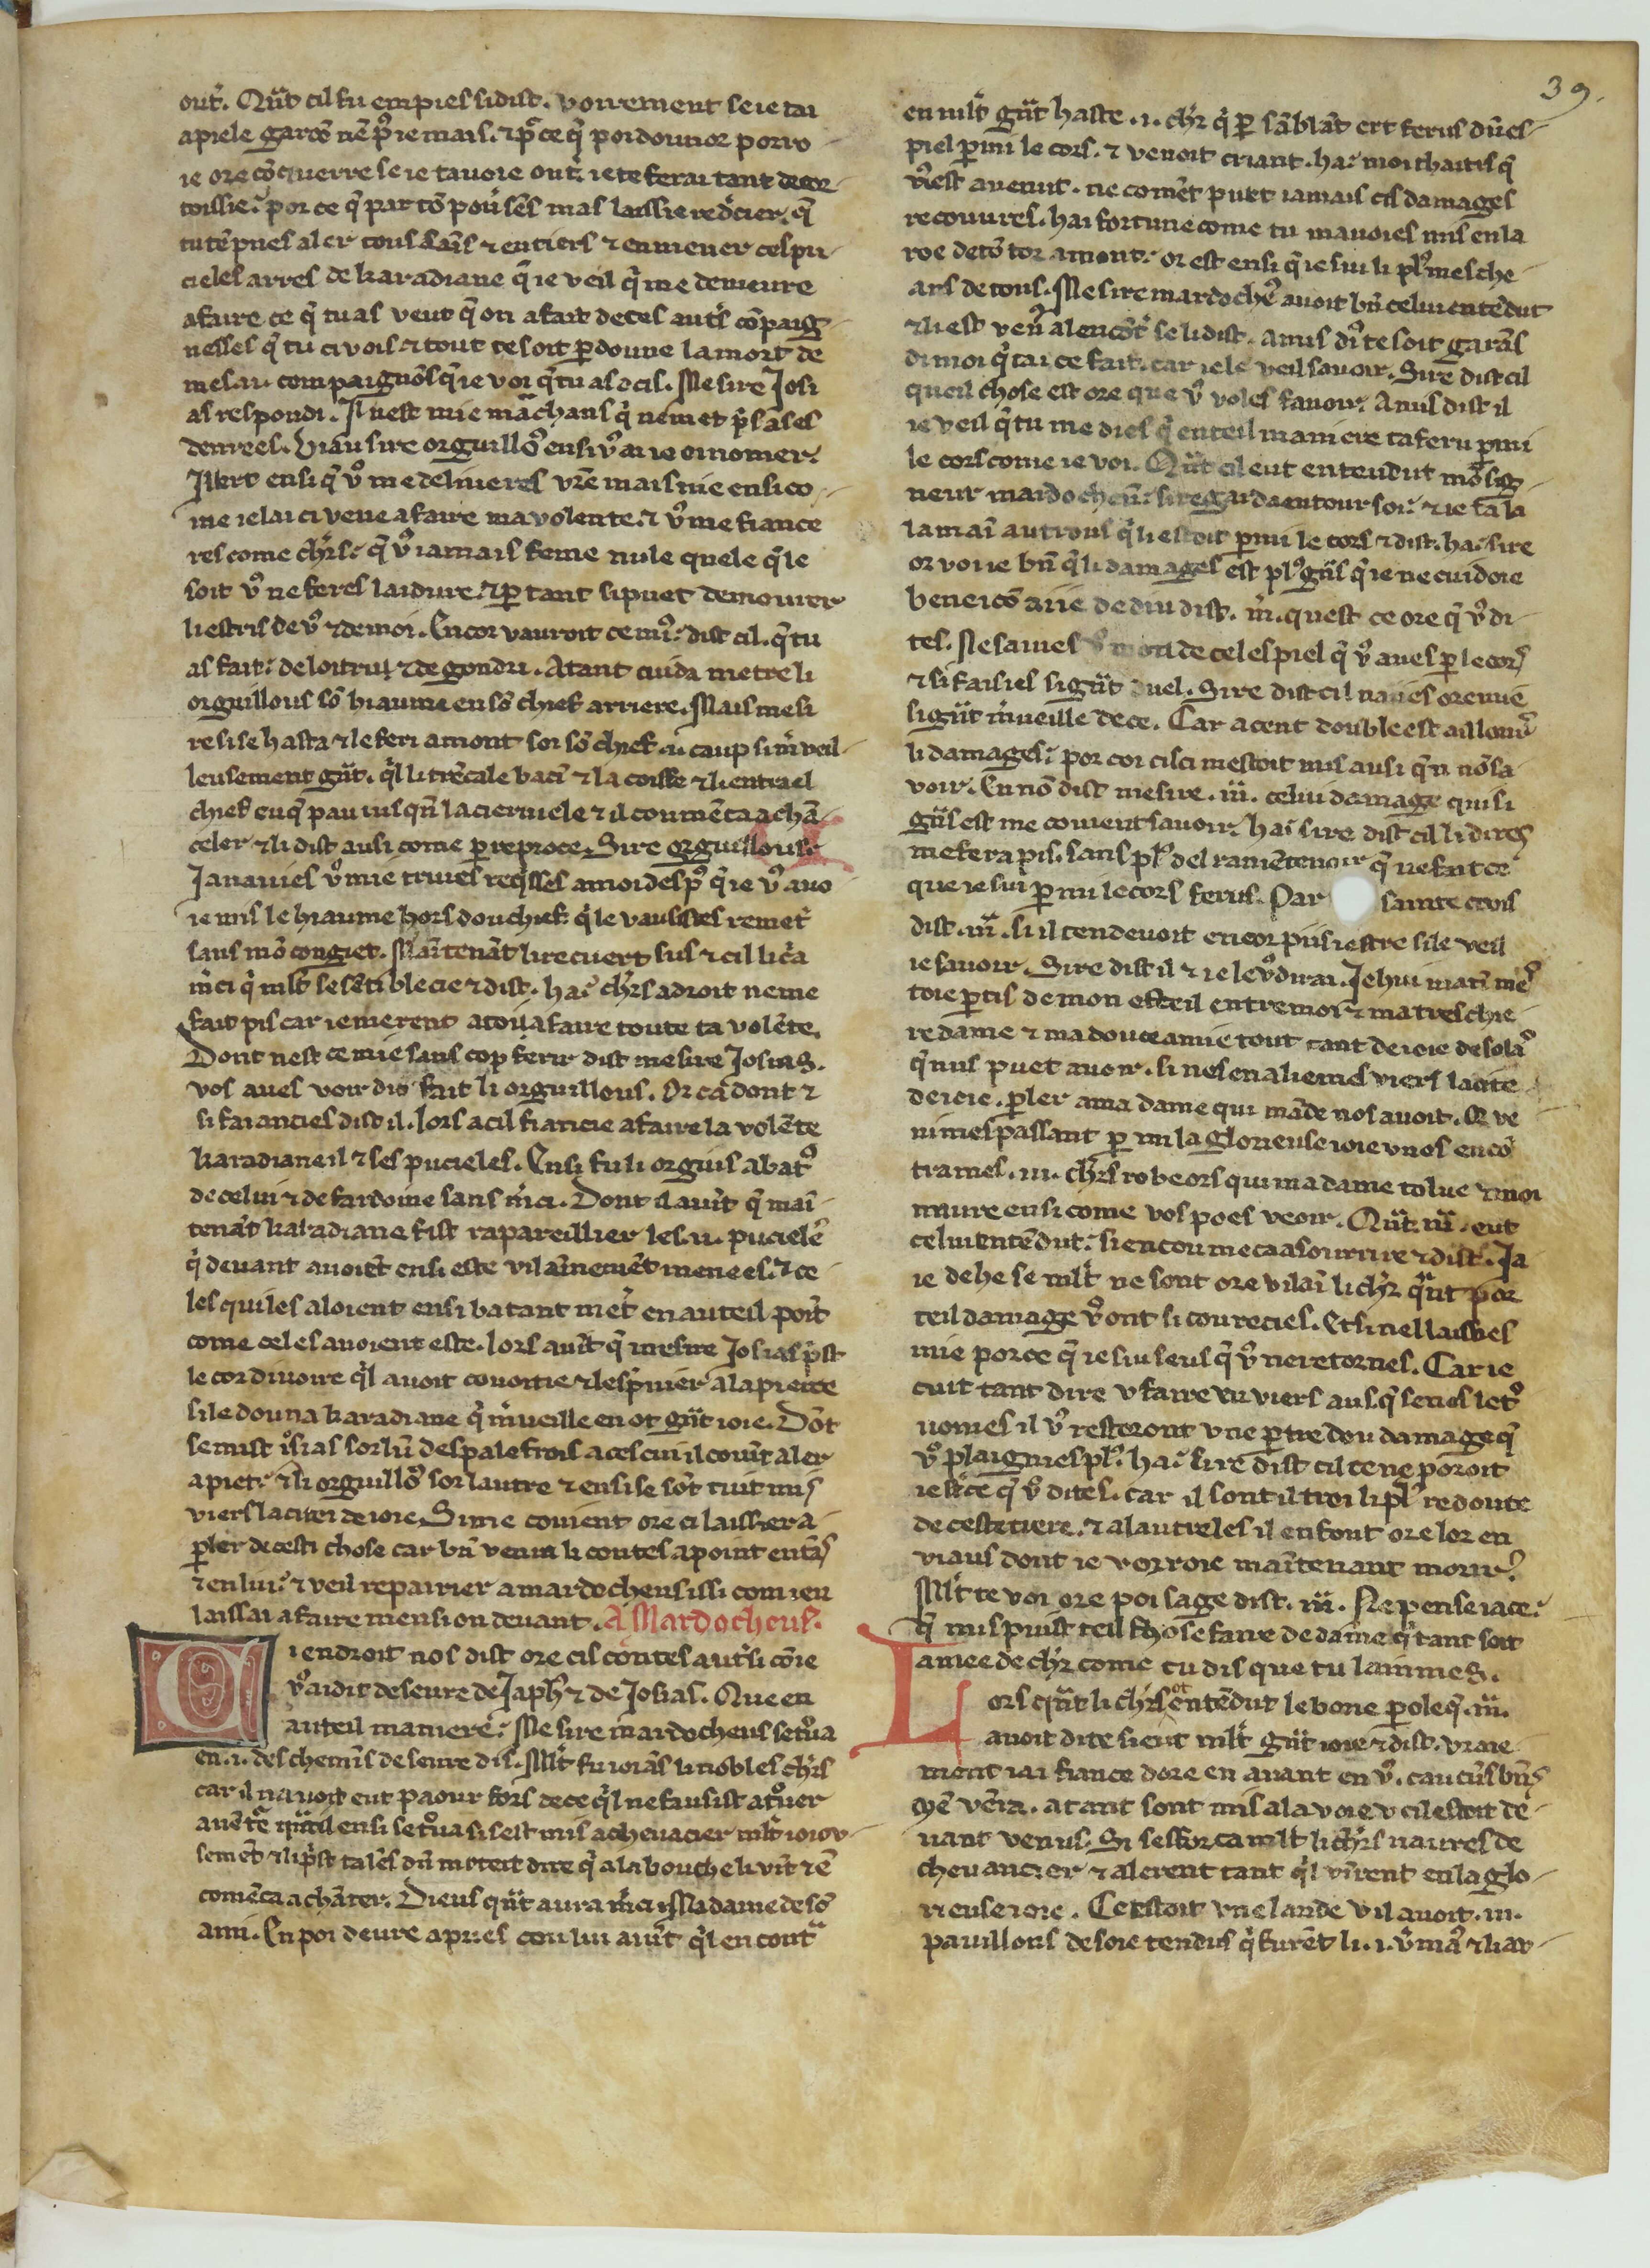 39.
outˀ. Qu̾t cil fu empies si dist. voirement se ie tai
apiele garcõ nẽ p̾ ie mais. ⁊ p̃ ce q̃ poi dounor porro
ie ore cõquerre se ie tavoie outˀ. ie te ferai tant de cor
toissie. por ce q̃ par tõ pou sẽs mas laissie redˀcier. q̃
tu tẽ pues aler tous sains ⁊ entiers ⁊ enmener ces pu
cieles arres de karadiane q̃ ie veil q̃ me demeure
a faire ce q̃ tu as veut q̃ on a fait de ces autˀs cõpaig
nesses q̃ tu ci vois ⁊ tout te soit ꝑdoune la mort de
mes .ii. compaignõs q̃ ie voi q̃ tu as ocis. Me sire Josi
as respondi. Il nest mie mãchans q̃ ne met pˀs a ses
denrees. biau sire orguillo᷒ ensi v᷒ ai ie oi nomer.
Il ert ensi q̃ v᷒ me deliueres vr̃e mais nie ensi co
me ie lai ci veue a faire ma volente. ⁊ v᷒ me fiance
res come chr̃s. q̃ v᷒ iamais feme nule quele q̃ le
soit v᷒ ne feres laidure. ⁊ ꝑ tant si puet demourer
li estris de v᷒ ⁊ de moi. Encor vauroit ce mi᷒. dist cil. q̃ tu
as fait. de loitrui ⁊ de gondru. Atant cuida metre li
orguillous sõ hiaume en sõ chief arriere. Mais me si
re si se hasta ⁊ le feri amont sor sõ chief .ii. caup si mˀveil
leusement gñt. q̃l li trẽce le baci ⁊ la coiffe ⁊ li entra el
chief euq̃ pau iusqñ la cieruiele ⁊ il coumẽca a chã
celer ⁊ li dist ausi come ꝑ reproce. Sire orguillous.
Ja naues v᷒ mie truies reqˀsses a moi desp᷒ q̃ ie v᷒ auo
ie mis le hiaume hors dou chief q̃ le vausisses remetˀ
sans mõ congiet. Maintenãt li recuert sus ⁊ cil li cˀa
mˀci q̃ mlt̃ se sẽti blecie ⁊ dist. ha. chr̃s adroit ne me
fait pis car ie me rent a toi a faire toute ta volẽte.
Dont nest ce mie sans cop ferir dist me sire Josias.
vos aues voir dit fait li orguillous. Or ca dont ⁊
si fai ancies dist il. lors a cil fiancie a faire la volẽte
karadiane il ⁊ ses pucieles. Ensi fu li orguis abat᷒
de celui ⁊ de fardoine sans mˀci. Dont il auĩt q̃ mai
tenãt karadiane fist rapareillier les .ii. pucieles
q̃ deuant auoiẽt ensi este vilainemẽt menees. ⁊ ce
les qui les aloient ensi batant metˀ en auteil poĩt
come celes auoient este. lors auĩt q̃ mesire Josias pˀst
le cor diuoire q̃l auoit conquis ⁊ lespˀuier a la pierre
si le douna karadiane q̃ mˀueille en ot gñt ioie. Dõt
se mist iosias sor lũ des palefrois a ces cui il couĩt aler
a piet. ⁊ li orguillo᷒ sor lautre ⁊ ensi se sõt tuit mis
viers la citei de ioie. Si me couient ore ci laissier a
ꝑler de cesti chose car bñ venra li contes a point entãs
⁊ en liu. ⁊ veil repairier a mardocheus issi com ieu
laissai a faire mension deuant. A Mardocheus.
Ciendroit nos dist ore cis contes autˀsi cõe
v᷒ ai dit deseure de Japh̃ ⁊ de Josias. Que en
auteil maniere. Me sire mardocheus se tˀua
en .i. des chemĩs deseure dis. Mlt̃ fu ioiãs li nobles chr̃s
car il nauoit eut paour fors de ce q̃l ne fausist a tˀuer
auẽtˀe qũt il ensi se tˀua si sest mis a cheuaucier mlt̃ ioiou
semẽt ⁊ li pˀst talẽs dũ motet dire q̃ a la bouche li vĩt ⁊ ẽ
comẽca a chãter. Dieus qñt aura mˀci Ma dame de sõ
ami. En poi deure apries cou lui auĩt q̃l encontˀa
en mlt̃ gñt haste .i. chr̃ q̃ ꝑ sãblãt ert ferus dũ es
piel ꝑmi le cors. ⁊ venoit criant. ha. moi chaitis q̃
mˀest auenut. ne comẽt puet iamais cis damages
recouures. hai fortune come tu mauoies mis en la
roe de tõ tor amont. or est ensi q̃ ie sui li pl᷒ mesche
ans de tous. Me sire mardoche᷒ auoit bñ celui entẽdut
⁊ li est venˀ a lencõtˀ se li dist. Amis di᷒ te soit garãs
di moi q̃ tai ce fait. car ie le veil sauoir. Sire dist cil
queil chose est ore que v᷒ voles sauoir. Amis dist il
ie veil q̃ tu me dies q̃ en teil maniere ta feru ꝑmi
le cors come ie voi. Qñt cil eut entendut mõ sig
neur mardocheu. si regarda entour soi. ⁊ ie ta la
la main au trous q̃ li estoit ꝑmi le cors ⁊ dist. ha. sire
or voi ie bñ q̃ li damages est pl᷒ gñs q̃ ie ne cuidoie
beneicõ aiie de diu dist. m̃. quest ce ore q̃ v᷒ di
tes. Ne saues v᷒ mon de cel espiel q̃ v᷒ aues ꝑ le cors
⁊ si faisies si gñt duel. Sire dist cil naies ore mie
si gñt mˀueille de ce. Car a cent double est aillours
li damages. por coi cil ci mestoit mis ausi q̃ n nõ sa
voir. En nõ dist mesire .m̃. celui damage qui si
gñs est me couient sauoir. hai sire dist cil li dires
me fera pis. sans pl᷒ del ramẽteuoir q̃ ne fait ce
que ie sui ꝑmi le cors ferus. Par sainte crois
dist .m̃. si il ten deuoit encor piis iestre si le veil
ie sauoir. Sire dist il ⁊ ie le v᷒ dirai. Jehui matĩ me᷒
toie ꝑtis de mon osteil entre moi ⁊ ma treschie
re dame ⁊ ma douce amie tout tant de ioie de solas
q̃ nus puet auoir. si nes en aliemes viers la cite
de ioie. ꝑler a ma dame qui mãde nos auoit. Q̃ ve
nimes passant ꝑmi la glorieuse ioie v nos encõ
trames .iii. chr̃s robeors qui ma dame tolue ⁊ moi
naure ensi come vos poes veoir. Qñt .m̃. eut
celui entẽdut. si encoumeca a sourrire ⁊ dist. Ja
ie dehe se mlt̃ ne sont ore vilai li chr̃ qñt por
teil damage v᷒ ont si coureciet. Et si nel laisses
mie por ce q̃ ie sui seus q̃ v᷒ ne retornes. Car ie
cuit tant dire v faire enviers aus q̃ se nes let᷒
uomes il v᷒ resteront une ꝑtie dou damage q̃
v᷒ plaignies pl᷒. ha. sire dist cil ce ne poroit
iestˀe q̃ v᷒ dites. car il sont il troi li pl᷒ redoute
de ceste tiere. ⁊ a lautre les il en font ore lor en
viaus dont ie vorroie maintenant morir.
Mlt̃ te voi ore poi sage dist .m̃. Ne pense ia ce.
q̃ nus puist teil chose faire de dame q̃ tant soit
amee de chr̃ come tu dis que tu lainmes.
Lors qñt li chr̃s ot entẽdut le bone ꝑole q̃ .m̃.
auoit dite si eut mlt̃ gñt ioie ⁊ dist. vraie
ment iai fiance dore en auant en v᷒. caucũs bñs
mẽ vẽra. atant sont mis a la voie v cil estoit de
uant venus. Si sesforca mlt̃ li chr̃s naures de
cheuaucier ⁊ alerent tant q̃l vĩrent en la glo
rieuse ioie. Ce estoit vne lande v il auoit .iii.
pauillons de soie tendus q̃ furẽt li .i. v᷒maus ⁊ li au